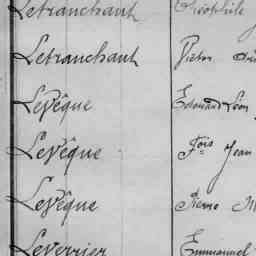 Letranchant Théophile
Letranchant Victor
LeVêque Edouard Léon
LeVêque Fois Jean
LeVêque Pierre M
LeVerrier Emmanuel